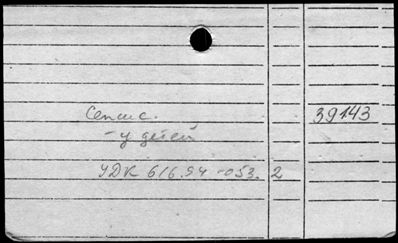 Сепсис. 39143
- у детей
УДК 616.94-053.2